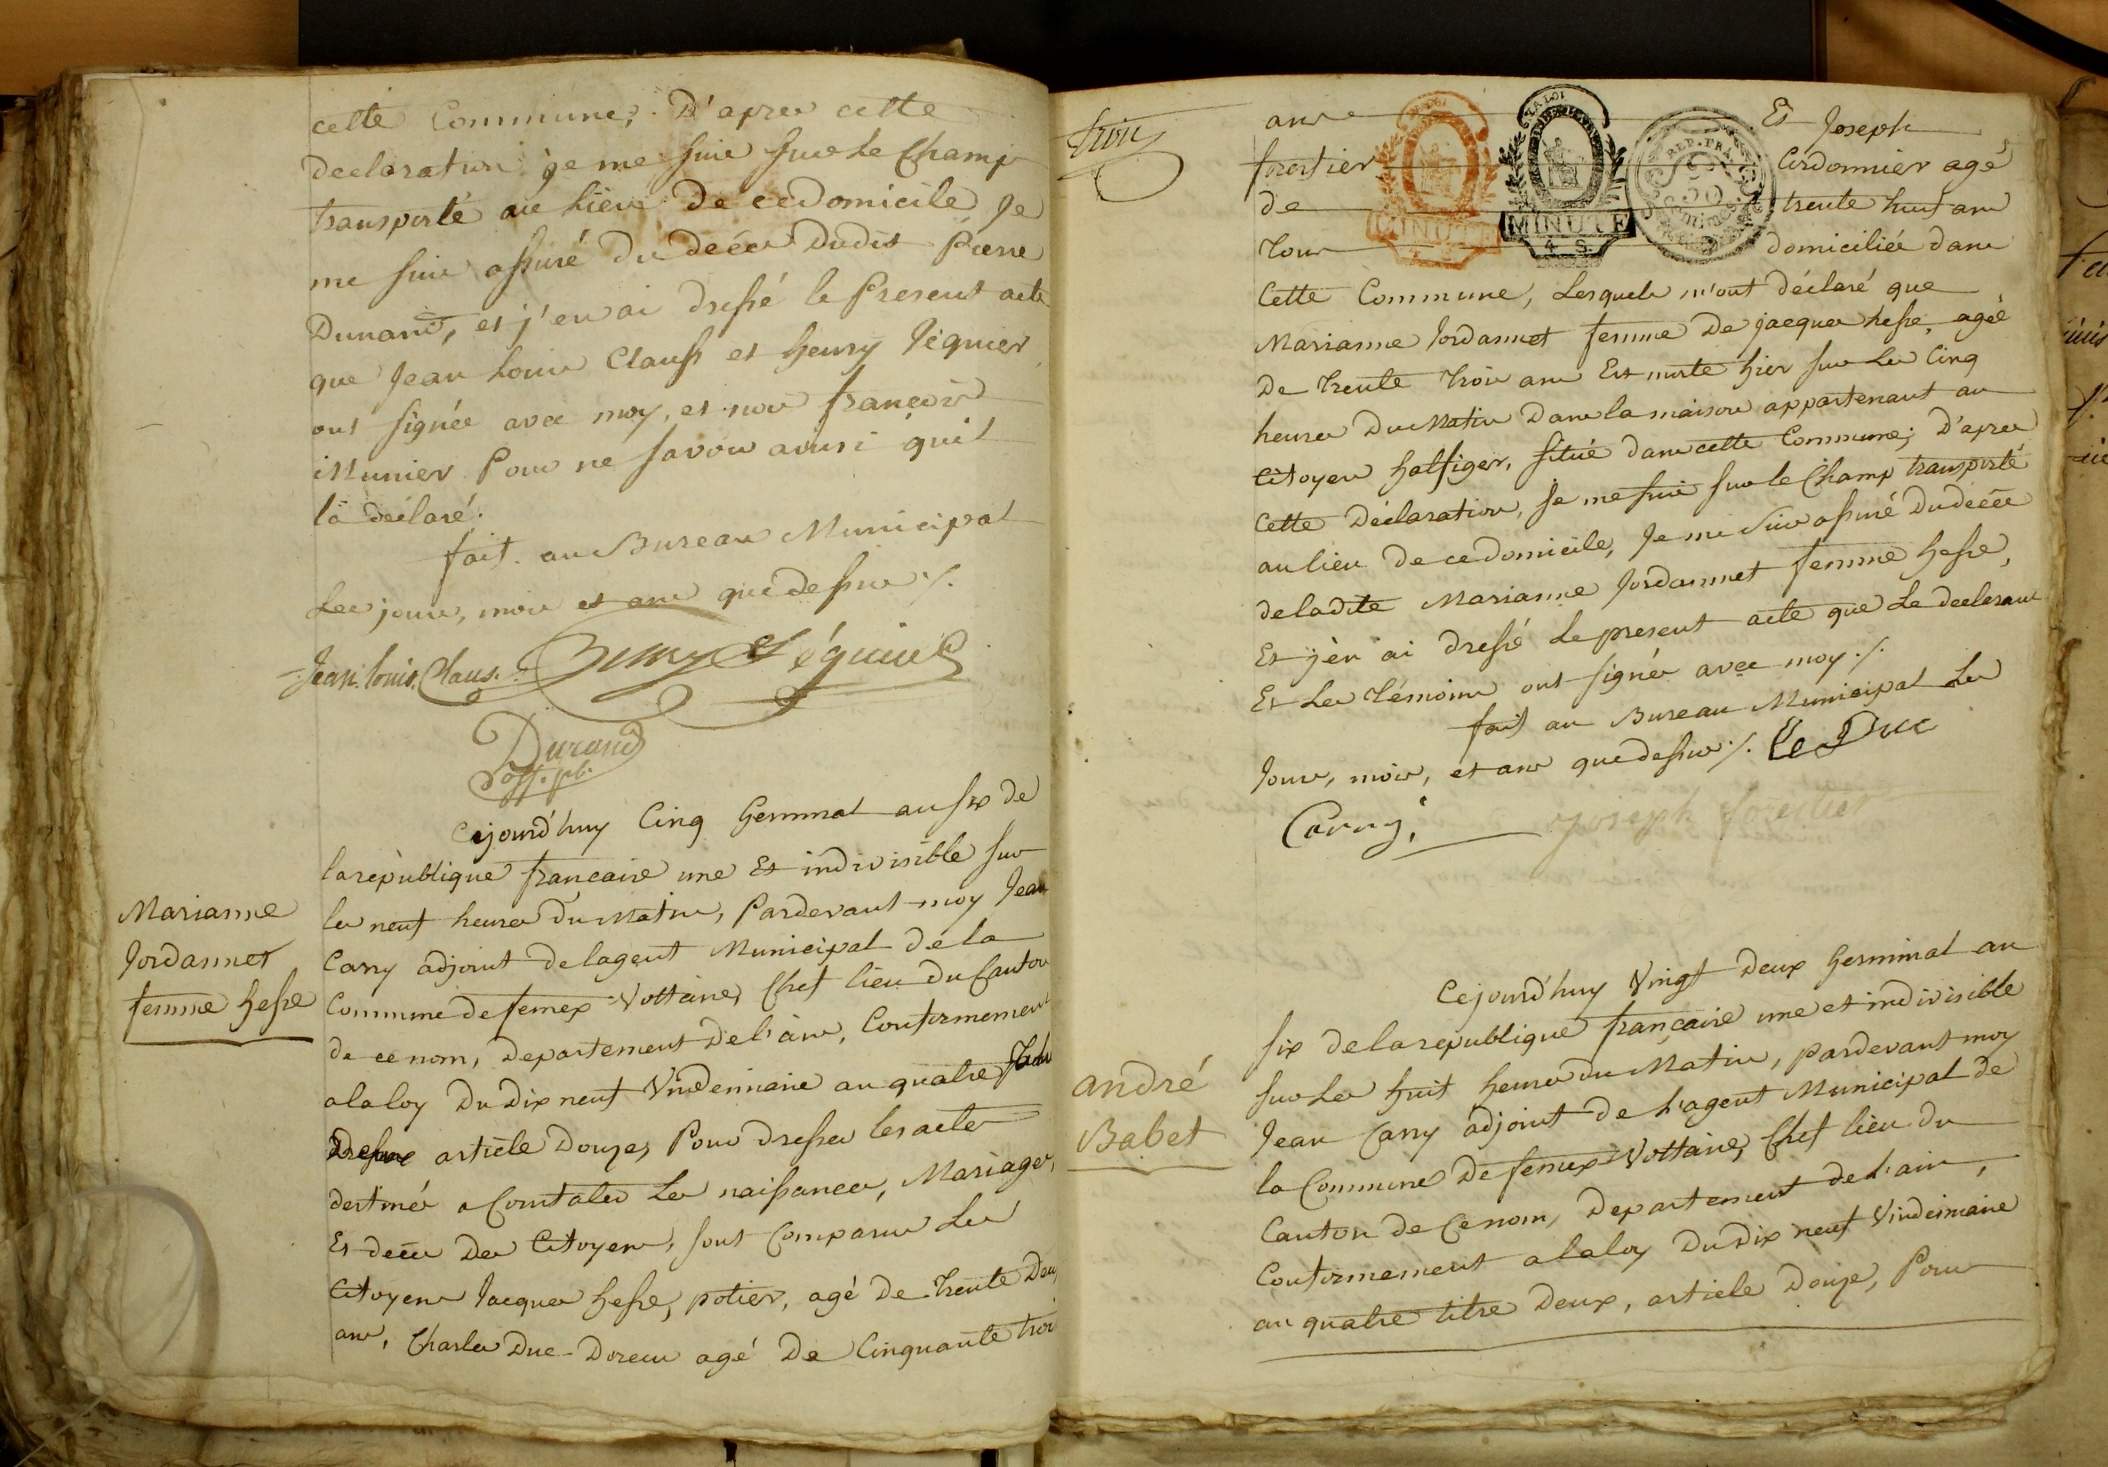 cette Commune, D'apres cette
declaration je me suis sur le Champ
transporté au lieu de ce domicile Je
me suis assuré du décés dudit Pierre
Dunand, et j'en ai dressé le present acte
que Jean Louis Clauss et henry Séguier
ont signés avec moy, et non françois
Munier Pour ne savoir ainsi quil
la déclaré.
fait au Bureau Municipal
Les jours, mois et ans que dessus ./.
Jean. louis. Claus.
Durand
off. pb.
Cejourd'huy Cinq Germinal an six de
la république francaise une Et indivisible sur
les neuf heures du Matin, Pardevant moy Jean
Carry adjoint de lagent Municipal de la
Commune de fernex Voltaire, Chef lieu du Canton
de ce nom, Departement de l'ain, Conformement
a la loy du dix neuf Vindemiaire an quatre
article Douze, Pour dresser les actes
destinés a Constater Les naissances, Mariages,
Et décés des Citoyens, sont Comparus Les
Citoyens Jacques hesse, potier, agé de trente deux
ans, Charles Duc Doreur agé de Cinquante trois
Marianne
Jordannet
femme hesse
trois
ans Et Joseph
forestier Cordonnier agé
de trente huit ans
tous domiciliés dans
Cette Commune, Lesquels m'ont déclaré que
Marianne Jordannet femme de jacques hesse, agée
de trente trois ans Est morte hier sur Les Cinq
heures du Matin dans la maison appartenant au
Citoyen halfiger, situé dans cette Commune; D'apres
Cette Déclaration, Je me suis sur le Champ transporté
au lieu de ce domicile, Je me suis assuré du décés
de ladite Marianne Jordannet femme hesse,
Et j'en ai dressé Le present acte que Le declarant
Et Les témoins ont signés avec moy ./.
fait au Bureau Municipal Les
Jours, mois, et ans que dessus ./. Le Duc
Carry, joseph forestier
MINUTE
4. S.
MINUTE
REP. FRA.
50
centimes
Cejourd'huy Vingt Deux Germinal an
six de la republique française une et indivisible
sur Les huit heures du Matin, pardevant moy
Jean Carry adjoint de L'agent Municipal de
la Commune de fernex Voltaire, Chef lieu du
Canton de Ce nom, Departement de L'ain,
Conformement a la loy du dix neuf Vindemiaire
an quatre titre Deux, article Douze, Pour
andré
Babet